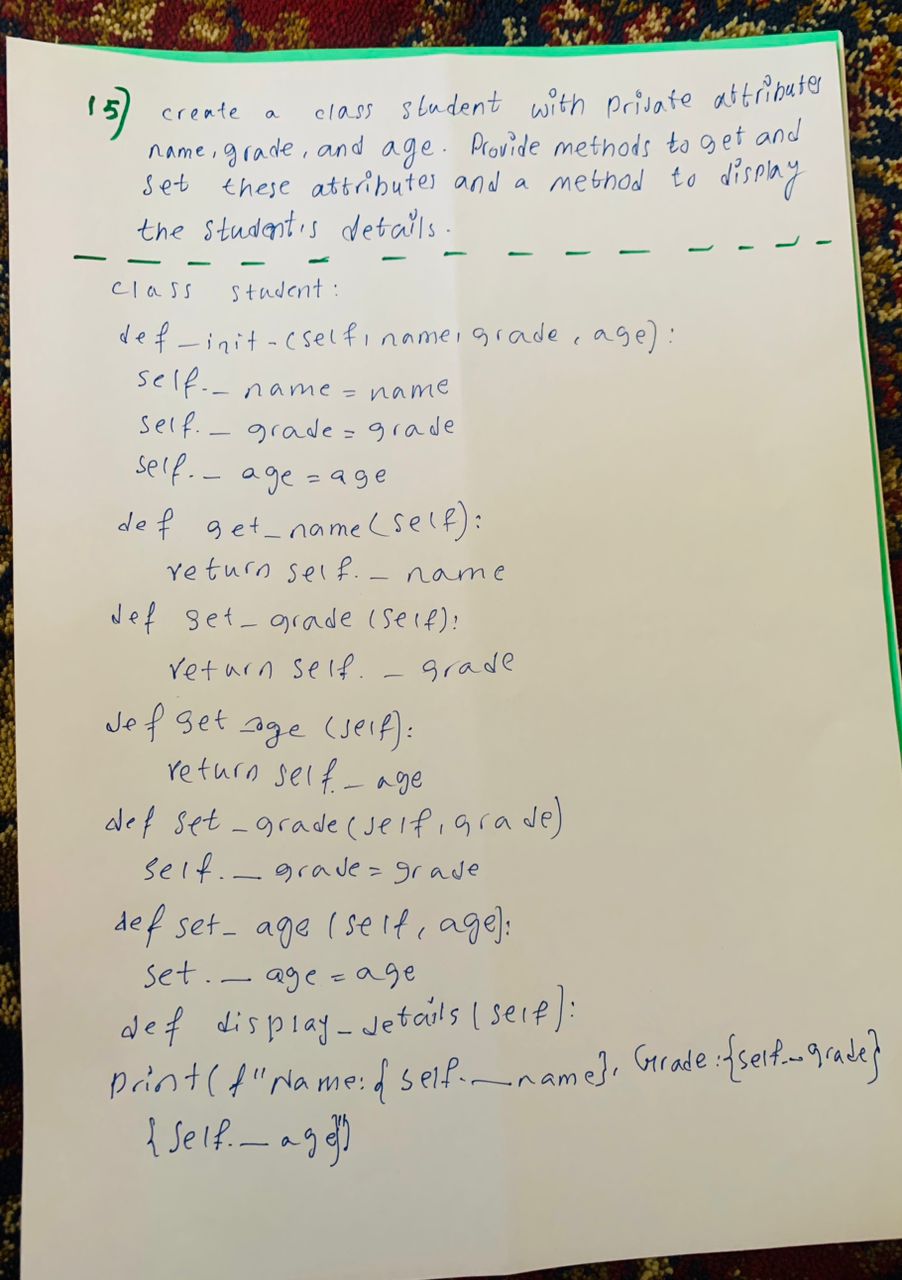 15) create a class student with private attributes
name, grade, and age. Provide methods to get and
set these attributes and a method to display
the student's details.
class student:
def _init_(self, name, grade, age):
self._ name = name
self._ grade = grade
self._ age = age
def get_name(self):
return self._ name
def get_grade(self):
return self._ grade
def get age (self):
return self._ age
def set_grade(self, grade)
self._ grade = grade
def set_ age (self, age):
set._ age = age
def display_details(self):
print(f"Name:{self._name}, Grade:{self._grade}
{self._age}")